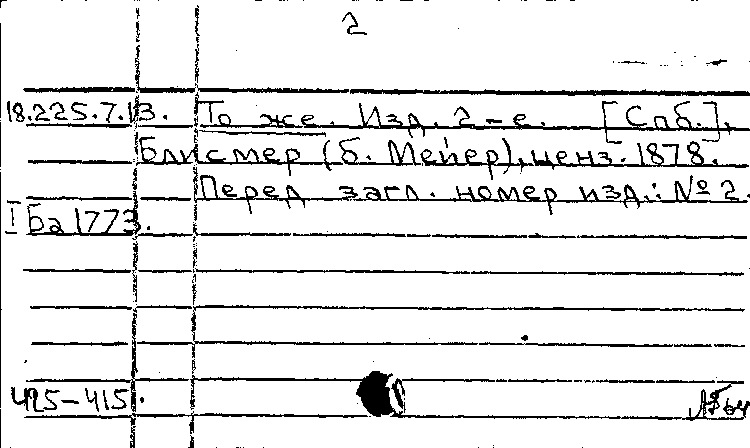 2
18.225.7.13. То же. Изд. 2-е. [Спб.],
Блисмер (б. Мейер), ценз. 1878.
Перед загл. номер изд.: № 2.
I Ба 1773.
425-415.